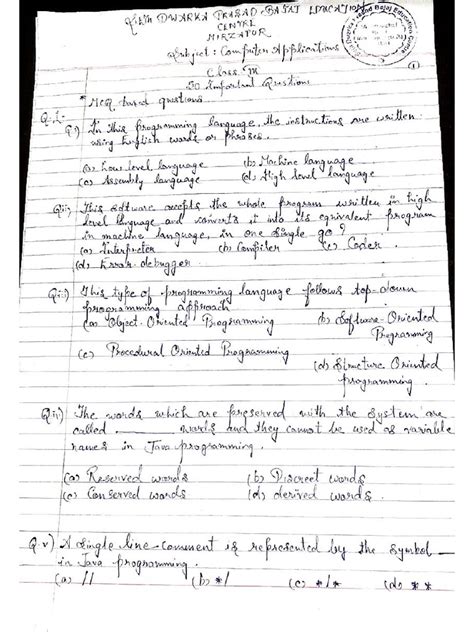 DWARKA PRASAD BAJAJ EDUCATION
CENTRE
MIRZAPUR
Subject: Computer Applications
(1)
Class-IX
50 Important Questions
* MCQ based questions.
Q.1.
Q.i) In this programming language, the instructions are written
using English words or phrases.
(a) Low level language (b) Machine language
(c) Assembly language (d) High level language
Q.ii) This software accepts the whole program written in high
level language and converts it into its equivalent program
in machine language, in one single go?
(a) Interpreter (b) Compiler (c) Coder.
(d) Error-debugger.
This type of programming language follows top-down
programming approach
(a) Object-Oriented Programming (b) Software-Oriented
Programming
(c) Procedural Oriented Programming
(d) Structure Oriented
programming.
The words which are preserved with the system are
called ______ words and they cannot be used as variable
names in Java programming.
(a) Reserved words (b) Discreet words
(c) Conserved words (d) derived words.
Q.v) A single line comment is represented by the symbol __
in Java programming.
(a) // (b) */ (c) */* (d) **